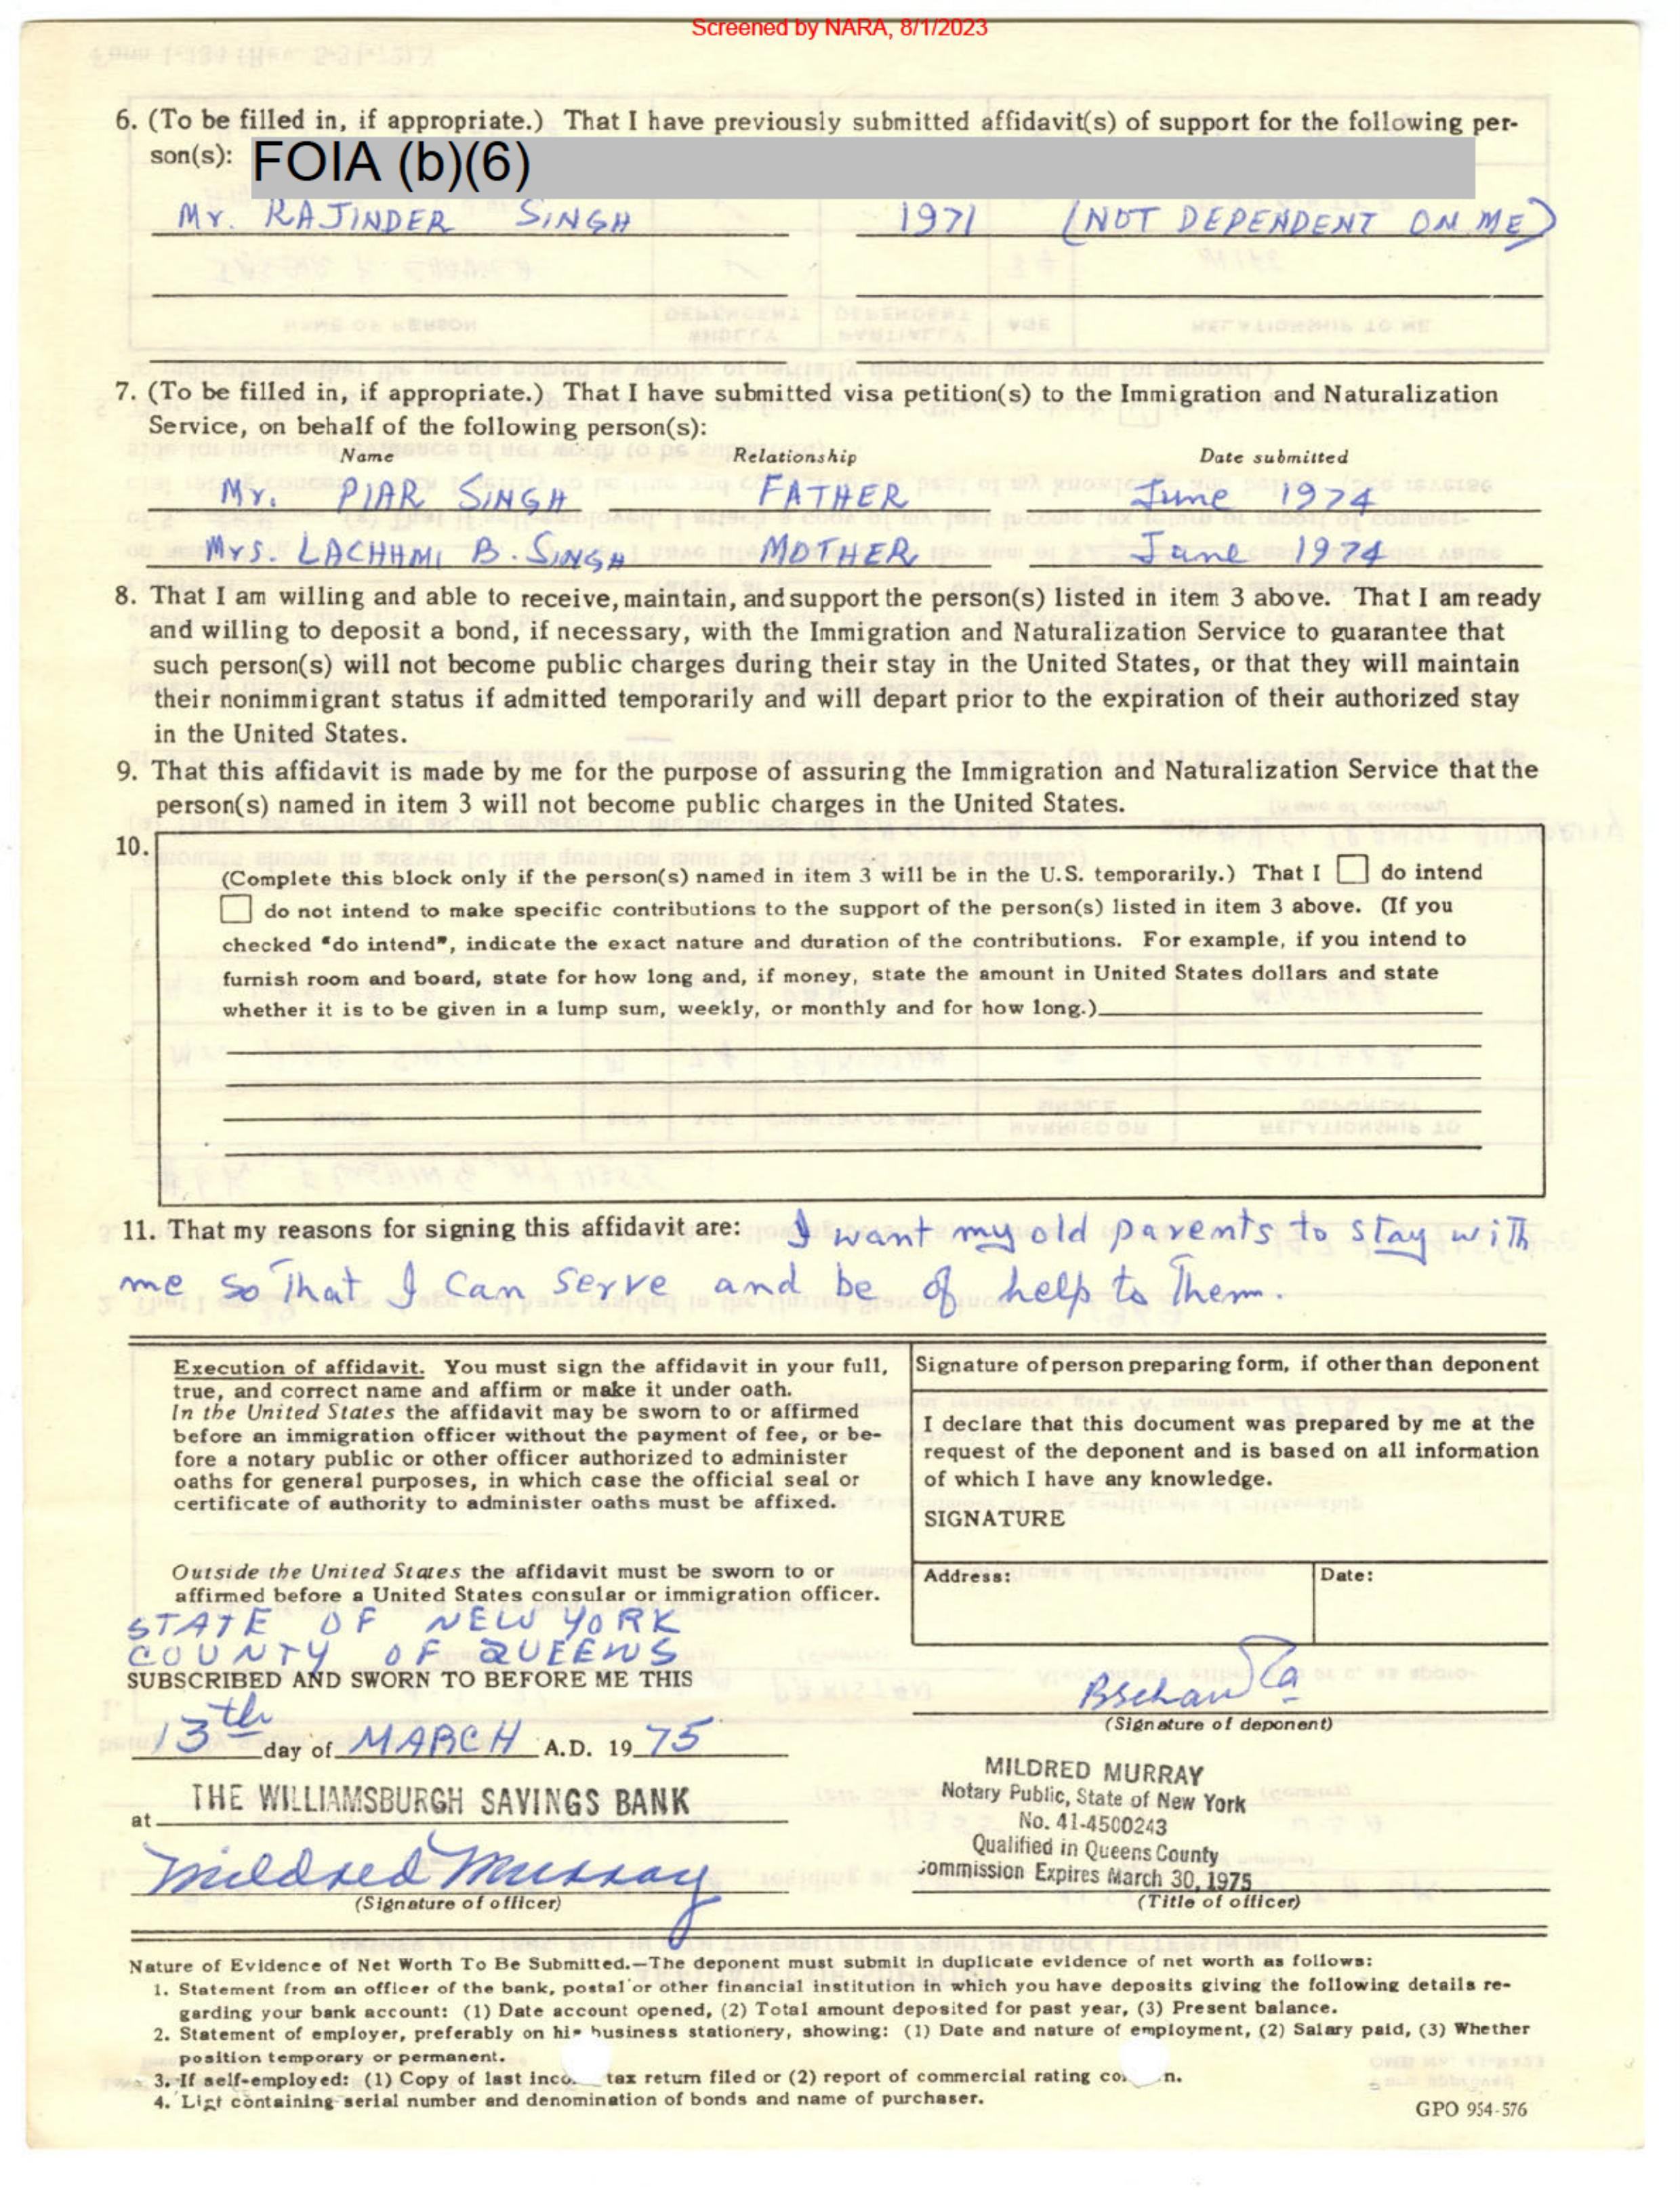 Screened by NARA, 8/1/2023
6. (To be filled in, if appropriate.) That I have previously submitted affidavit(s) of support for the following per-
son(s): FOIA (b)(6)
Mr. RAJINDER SINGH 1971 (NOT DEPENDENT ON ME)
7. (To be filled in, if appropriate.) That I have submitted visa petition(s) to the Immigration and Naturalization
Service, on behalf of the following person(s):
Name Relationship Date submitted
Mr. PIAR SINGH FATHER June 1974
Mrs. LACHHMI B. SINGH MOTHER June 1974
8. That I am willing and able to receive, maintain, and support the person(s) listed in item 3 above. That I am ready
and willing to deposit a bond, if necessary, with the Immigration and Naturalization Service to guarantee that
such person(s) will not become public charges during their stay in the United States, or that they will maintain
their nonimmigrant status if admitted temporarily and will depart prior to the expiration of their authorized stay
in the United States.
9. That this affidavit is made by me for the purpose of assuring the Immigration and Naturalization Service that the
person(s) named in item 3 will not become public charges in the United States.
10.
(Complete this block only if the person(s) named in item 3 will be in the U.S. temporarily.) That I do intend
do not intend to make specific contributions to the support of the person(s) listed in item 3 above. (If you
checked "do intend", indicate the exact nature and duration of the contributions. For example, if you intend to
furnish room and board, state for how long and, if money, state the amount in United States dollars and state
whether it is to be given in a lump sum, weekly, or monthly and for how long.)
11. That my reasons for signing this affidavit are: I want my old parents to stay with
me so that I can serve and be of help to them.
Execution of affidavit. You must sign the affidavit in your full,
true, and correct name and affirm or make it under oath.
In the United States the affidavit may be sworn to or affirmed
before an immigration officer without the payment of fee, or be-
fore a notary public or other officer authorized to administer
oaths for general purposes, in which case the official seal or
certificate of authority to administer oaths must be affixed.
Outside the United States the affidavit must be sworn to or
affirmed before a United States consular or immigration officer.
Signature of person preparing form, if other than deponent
I declare that this document was prepared by me at the
request of the deponent and is based on all information
of which I have any knowledge.
SIGNATURE
Address: Date:
STATE OF NEW YORK
COUNTY OF QUEENS
SUBSCRIBED AND SWORN TO BEFORE ME THIS
13th day of MARCH A.D. 1975
(Signature of deponent)
at THE WILLIAMSBURGH SAVINGS BANK
Mildred Murray
(Signature of officer)
MILDRED MURRAY
Notary Public, State of New York
No. 41-4500243
Qualified in Queens County
Commission Expires March 30, 1975
(Title of officer)
Nature of Evidence of Net Worth To Be Submitted.—The deponent must submit in duplicate evidence of net worth as follows:
1. Statement from an officer of the bank, postal or other financial institution in which you have deposits giving the following details re-
garding your bank account: (1) Date account opened, (2) Total amount deposited for past year, (3) Present balance.
2. Statement of employer, preferably on his business stationery, showing: (1) Date and nature of employment, (2) Salary paid, (3) Whether
position temporary or permanent.
3. If self-employed: (1) Copy of last inco tax return filed or (2) report of commercial rating co n.
4. List containing serial number and denomination of bonds and name of purchaser.
GPO 954-576